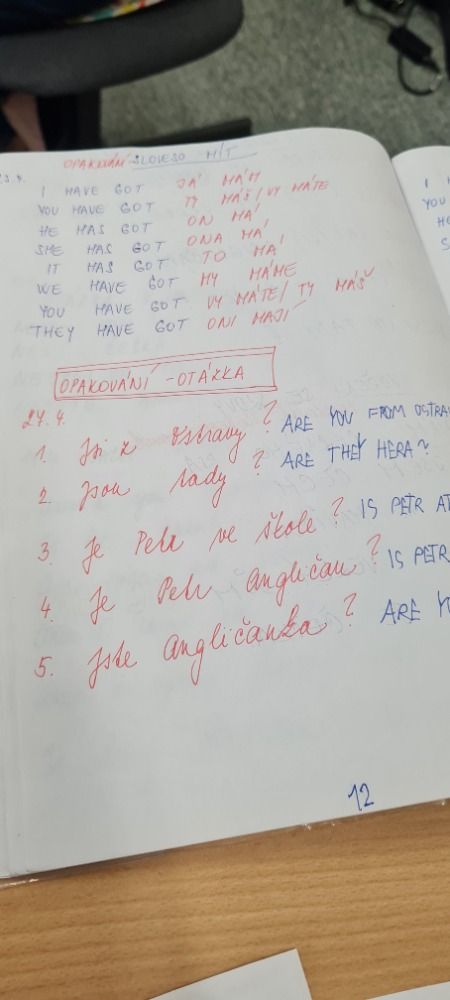 OPAKOVÁNÍ SLOVESO MÍT
23.4.
I HAVE GOT JÁ MÁM
YOU HAVE GOT TY MÁŠ/VY MÁTE
HE HAS GOT ON MÁ
SHE HAS GOT ONA MÁ
IT HAS GOT TO MÁ
WE HAVE GOT MY MÁME
YOU HAVE GOT VY MÁTE/TY MÁŠ
THEY HAVE GOT ONI MAJÍ
OPAKOVÁNÍ - OTÁZKA
27.4.
1. Jsi z Ostravy? ARE YOU FROM OSTRA
2. Jsou tady? ARE THEY HERA?
3. Je Petr ve škole? IS PETR AT
4. Je Petr Angličan? IS PETR
5. Jste Angličanka? ARE YO
12
YOU